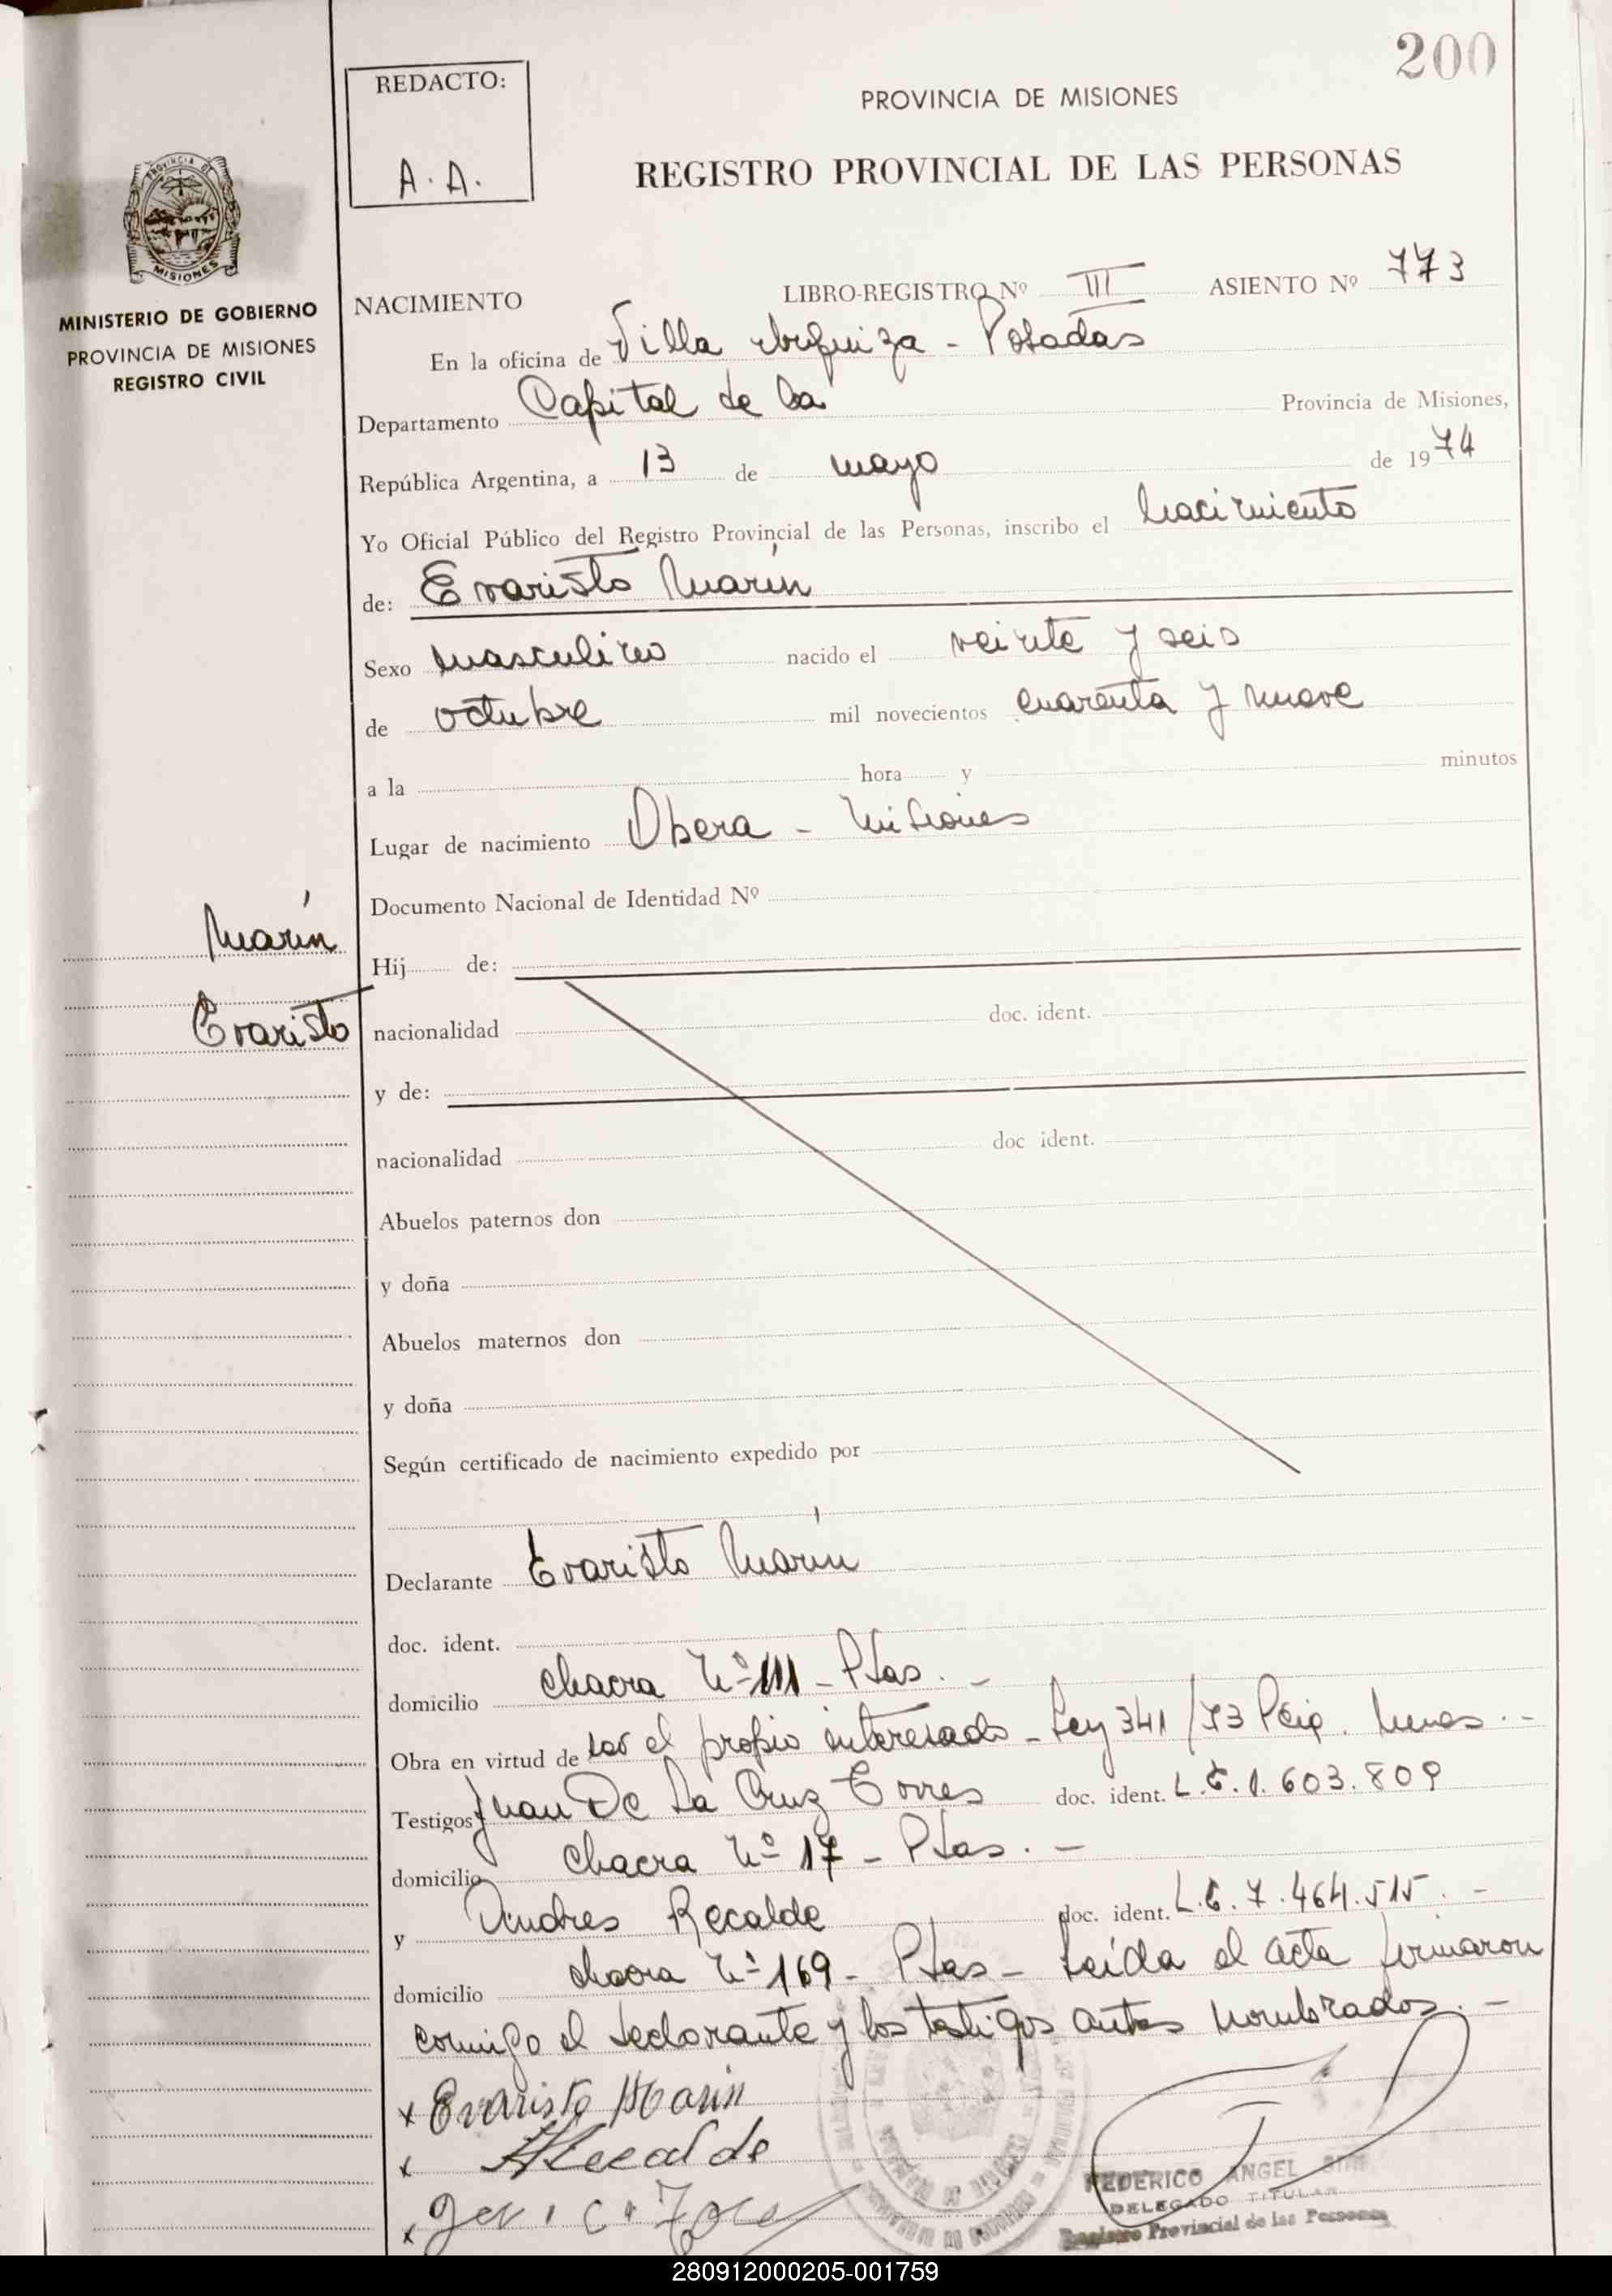 200
REDACTO:
A. A.
PROVINCIA DE MISIONES
REGISTRO PROVINCIAL DE LAS PERSONAS
PROVINCIA DE
MISIONES
MINISTERIO DE GOBIERNO
PROVINCIA DE MISIONES
REGISTRO CIVIL
NACIMIENTO LIBRO-REGISTRO Nº III ASIENTO Nº 773
En la oficina de Villa Urquiza - Posadas
Departamento Capital de la Provincia de Misiones,
República Argentina, a 13 de mayo de 1974
Yo Oficial Público del Registro Provincial de las Personas, inscribo el Nacimiento
de: Evaristo Marín
Sexo masculino nacido el veinte y seis
de octubre mil novecientos cuarenta y nueve
a la hora y minutos
Lugar de nacimiento Obera - Misiones
Documento Nacional de Identidad Nº
Marín
Evaristo
Hij de:
nacionalidad doc. ident.
y de:
nacionalidad doc ident.
Abuelos paternos don
y doña
Abuelos maternos don
y doña
Según certificado de nacimiento expedido por
Declarante Evaristo Marín
doc. ident.
domicilio chacra Nº 111 - Pdas. -
Obra en virtud de ser el propio interesado - Ley 341/73
Testigos Juan De La Cruz Torres doc. ident. L.E. 1.603.809
domicilio chacra Nº 17 - Pdas. -
y Andres Recalde doc. ident. L.E. 7.464.515. -
domicilio chacra Nº 169 - Pdas - Leída el acta firmaron
conmigo el declarante y los testigos antes nombrados. -
x Evaristo Marin
x ARecalde
x
FEDERICO ANGEL
DELEGADO TITULAR
Registro Provincial de las Personas
280912000205-001759